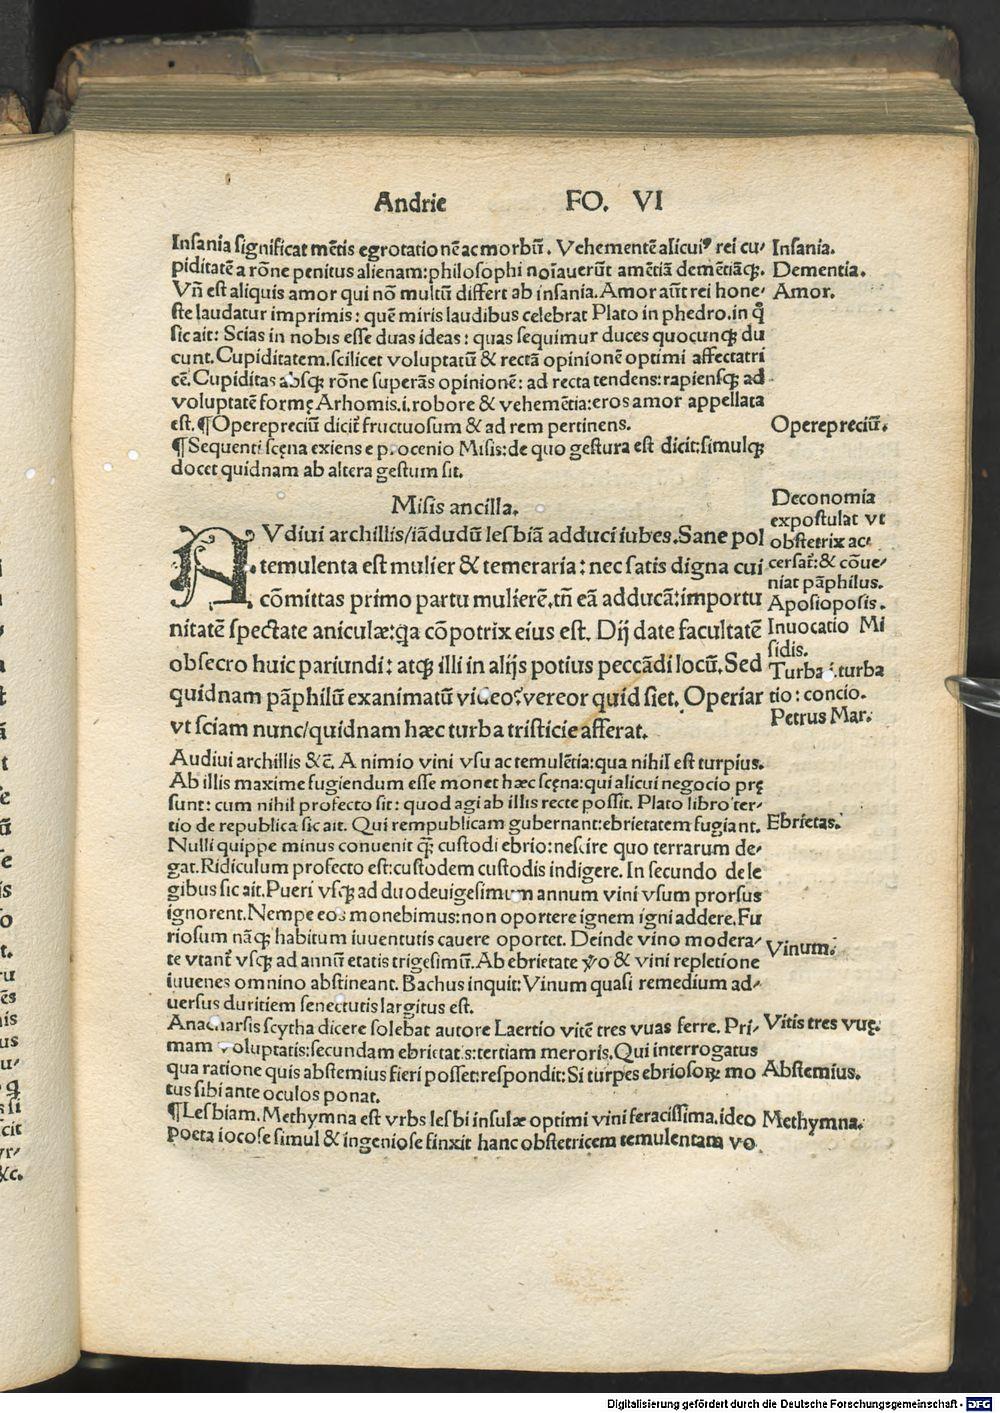 Andrie FO. VI
Inſania ſignificat mētis egrotationē ac morbū. Vehementē alicuiꝰ rei cu⸗
piditatē a rōne penitus alienam:philoſophi noīauerūt amētiā demētiāqꝫ.
Vn̄ eſt aliquis amor qui nō multū differt ab inſania. Amor aūt rei hone⸗
ſte laudatur imprimis: quē miris laudibus celebrat Plato in phedro. in q̄
ſic ait: Scias in nobis eſſe duas ideas: quas ſequimur duces quocunqꝫ du
cunt. Cupiditatem. ſcilicet voluptatū & rectā opinionē optimi affectatri
cē. Cupiditas abſqꝫ rōne ſuperās opinionē: ad recta tendens:rapienſqꝫ ad
voluptatē formę Arhomis.i.robore & vehemētia:eros amor appellata
eſt. ¶Operepreciū dicit̄ fructuoſum & ad rem pertinens.
¶Sequenti ſcęna exiens e procenio Miſis:de quo geſtura eſt dicit:ſimulqꝫ
docet quidnam ab altera geſtum ſit.
Inſania.
Dementia.
Amor.
Operepreciū.
Miſis ancilla.
AVdiui archillis/iādudū leſbiā adduci iubes. Sane pol
temulenta eſt mulier & temeraria: nec ſatis digna cui
cōmittas primo partu mulierē. tn̄ eā adducā:importu
nitatē ſpectate aniculæ:q̄a cōpotrix eius eſt. Dij date facultatē
obſecro huic pariundi: atqꝫ illi in alijs potius peccādi locū. Sed
quidnam pāphilū exanimatū video? vereor quid ſiet. Operiar
vt ſciam nunc/quidnam hæc turba triſticie afferat.
Deconomia
expoſtulat vt
obſtetrix ac⸗
cerſat̄:& cōue⸗
niat pāphilus.
Apoſiopoſis.
Inuocatio Mi
ſidis.
Turba i.turba
tio: concio.
Petrus Mar.
Audiui archillis &c̄. A nimio vini vſu ac temulētia:qua nihil eſt turpius.
Ab illis maxime fugiendum eſſe monet hæc ſcęna:qui alicui negocio prę
ſunt: cum nihil profecto ſit: quod agi ab illis recte poſſit. Plato libro ter⸗
tio de republica ſic ait. Qui rempublicam gubernant:ebrietatem fugiant.
Nulli quippe minus conuenit q̄ꝫ cuſtodi ebrio:neſcire quo terrarum de⸗
gat. Ridiculum profecto eſt:cuſtodem cuſtodis indigere. In ſecundo de le
gibus ſic ait. Pueri vſqꝫ ad duodeuigeſimum annum vini vſum prorſus
ignorent. Nempe eos monebimus:non oportere ignem igni addere. Fu
rioſum nāqꝫ habitum iuuentutis cauere oportet. Deinde vino modera⸗
te vtant̄ vſqꝫ ad annū etatis trigeſimū. Ab ebrietate v̄o & vini repletione
iuuenes omnino abſtineant. Bachus inquit: Vinum quaſi remedium ad⸗
uerſus duritiem ſenectutis largitus eſt.
Anacharſis ſcytha dicere ſolebat autore Laertio vitē tres vuas ferre. Pri⸗
mam voluptatis:ſecundam ebrietatis:tertiam meroris. Qui interrogatus
qua ratione quis abſtemius fieri poſſet:reſpondit: Si turpes ebrioſoꝝ mo
tus ſibi ante oculos ponat.
¶Leſbiam. Methymna eſt vrbs leſbi inſulæ optimi vini feraciſſima. ideo
Poeta iocoſe ſimul & ingenioſe finxit hanc obſtetricem temulentam vo
Ebrietas.
Vinum.
Vitis tres vuę.
Abſtemius.
Methymna.
Digitalisierung gefördert durch die Deutsche Forschungsgemeinschaft - DFG